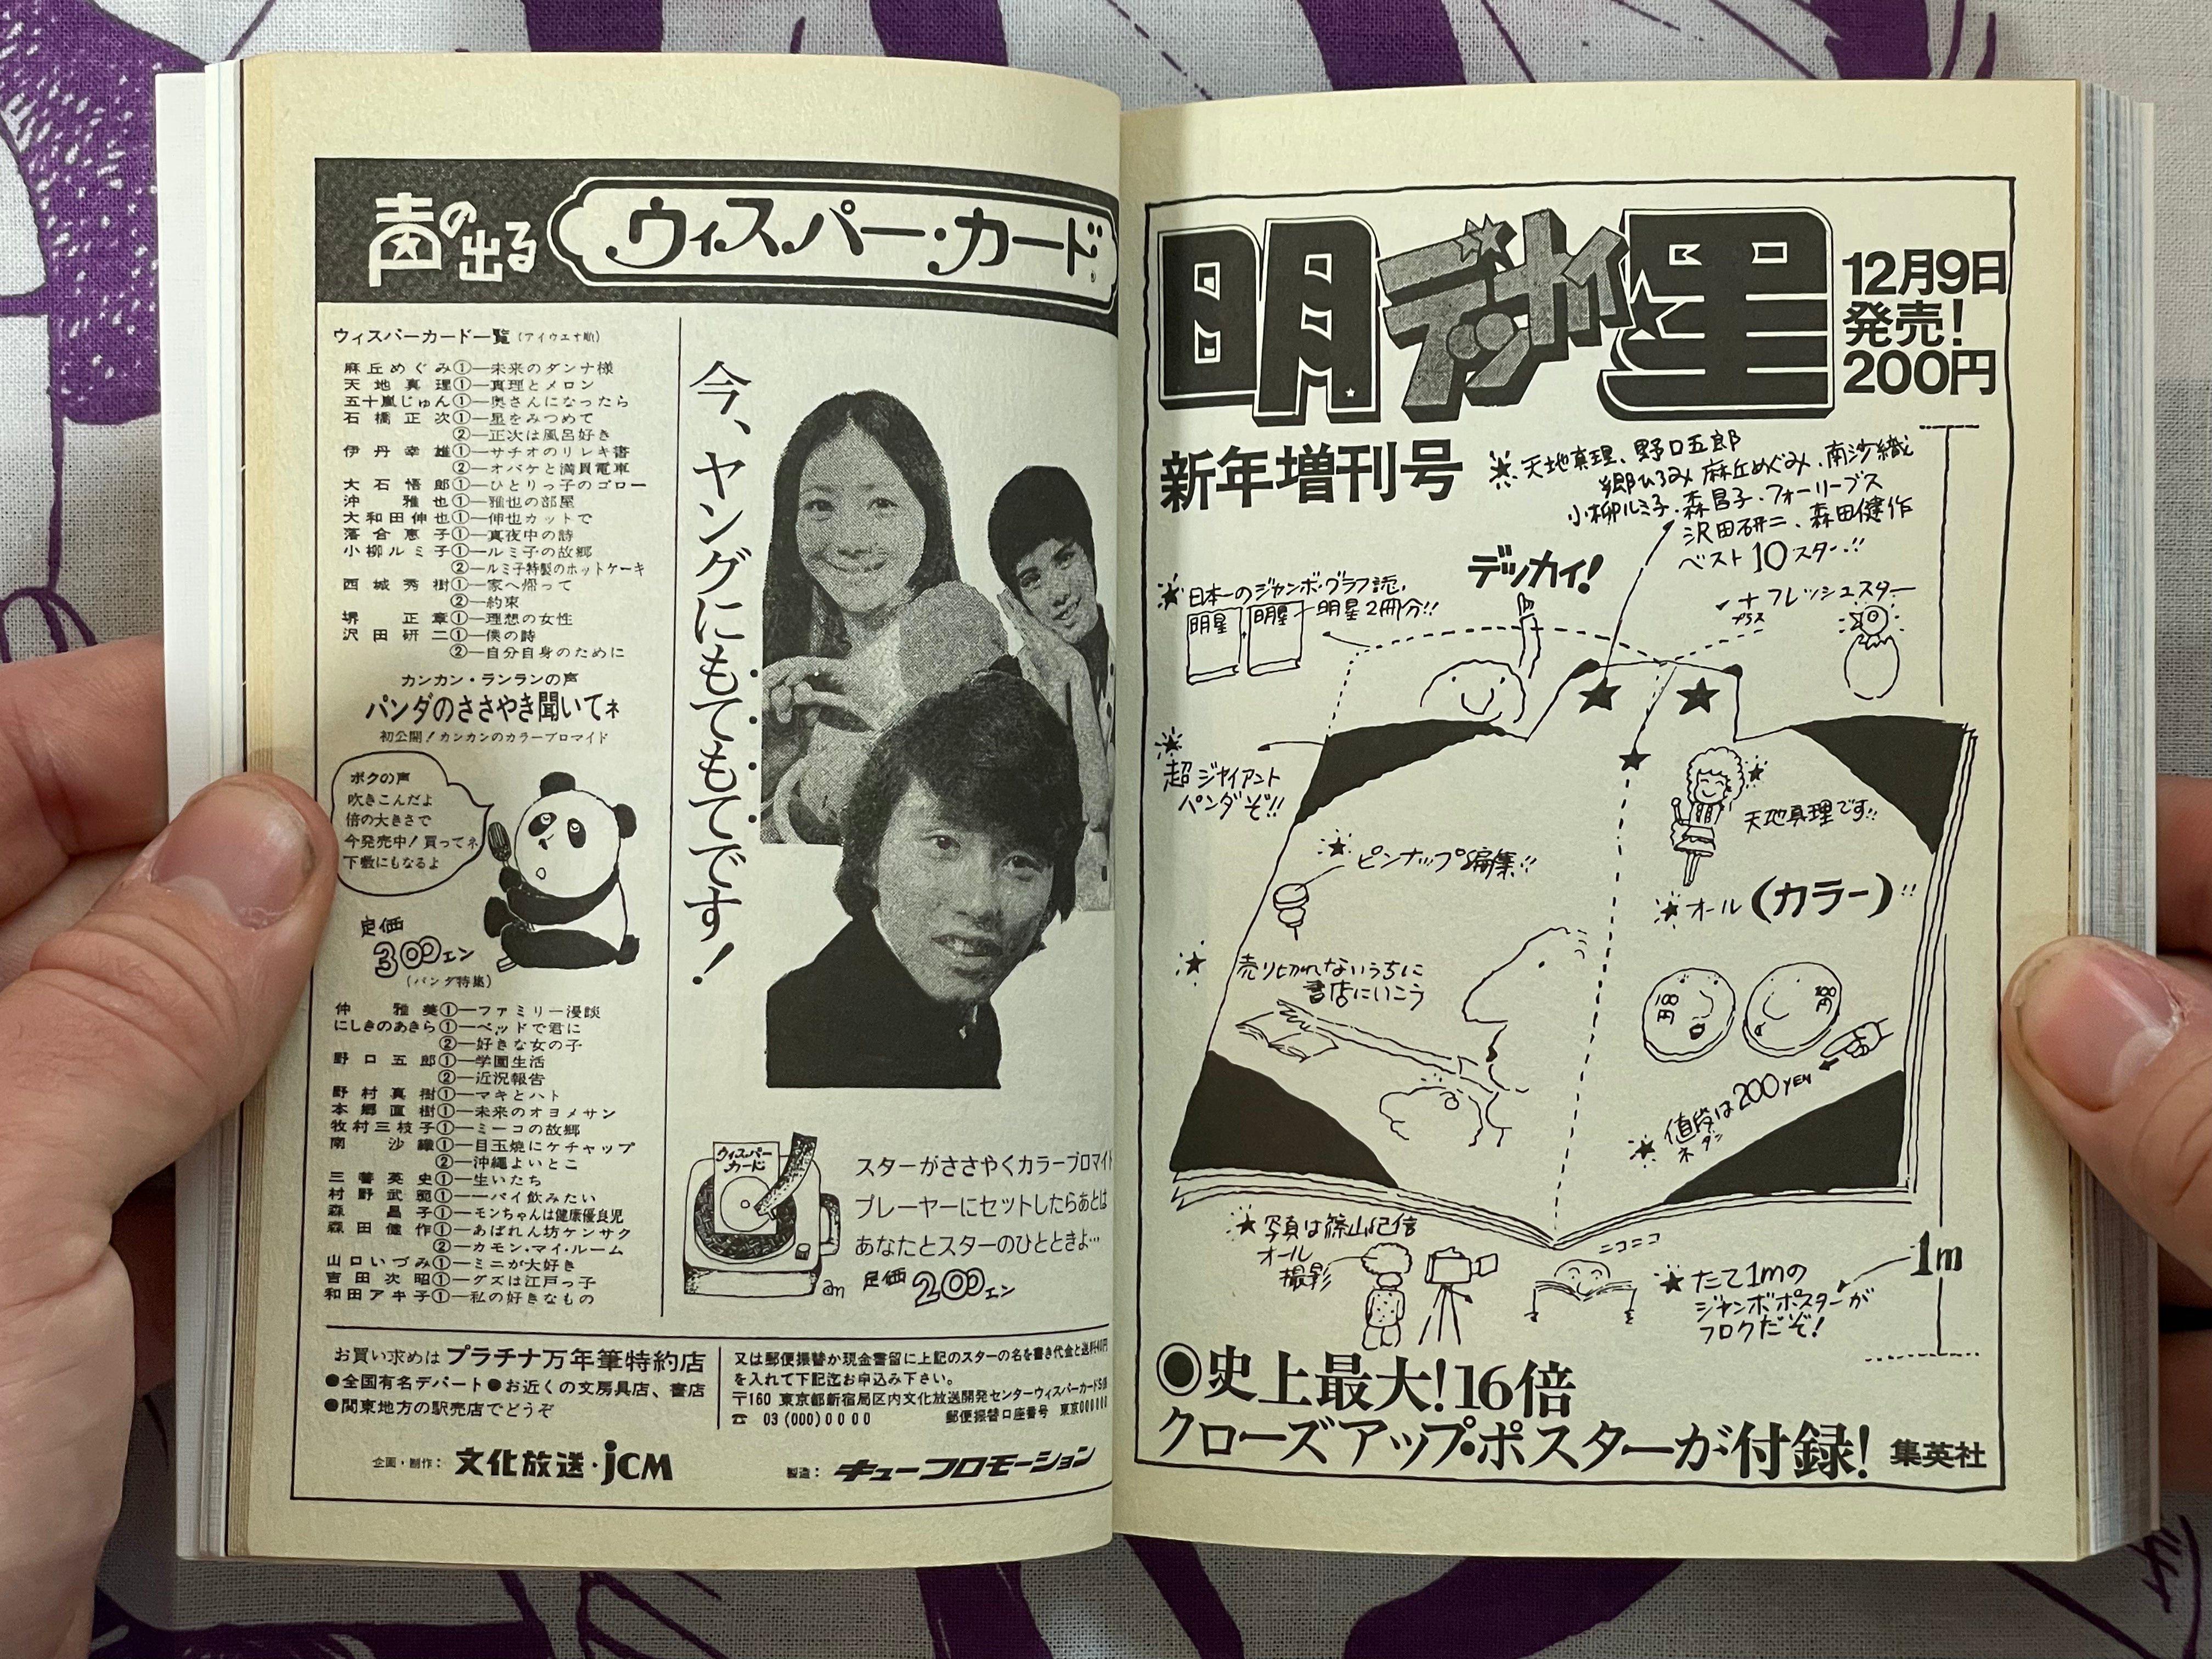 声の出る
ウィスパー・カード
ウィスパーカード一覧（アイウエオ順）
麻丘めぐみ①―未来のダンナ様
天地真理①―真理とメロン
五十嵐じゅん①―奥さんになったら
石橋正次①―星をみつめて
②―正次は風呂好き
伊丹幸雄①―サチオのリレキ書
②―オバケと満員電車
大石悟郎①―ひとりっ子のゴロー
沖雅也①―雅也の部屋
大和田伸也①―伸也カットで
落合恵子①―真夜中の詩
小柳ルミ子①―ルミ子の故郷
②―ルミ子特製のホットケーキ
西城秀樹①―家へ帰って
②―約束
堺正章①―理想の女性
沢田研二①―僕の詩
②―自分自身のために
カンカン・ランランの声
パンダのささやき聞いてネ
初公開！カンカンのカラーブロマイド
ボクの声
吹きこんだよ
倍の大きさで
今発売中！買ってネ
下敷にもなるよ
定価
300エン
（パンダ特集）
仲雅美①―ファミリー漫談
にしきのあきら①―ベッドで君に
②―好きな女の子
野口五郎①―学園生活
②―近況報告
野村真樹①―マキとハト
本郷直樹①―未来のオヨメサン
牧村三枝子①―ミーコの故郷
南沙織①―目玉焼にケチャップ
②―沖縄よいとこ
三善英史①―生いたち
村野武範①―一パイ飲みたい
森昌子①―モンちゃんは健康優良児
森田健作①―あばれん坊ケンサク
②―カモン・マイ・ルーム
山口いづみ①―ミニが大好き
吉田次昭①―グズは江戸っ子
和田アキ子①―私の好きなもの
今、ヤングにもてもてです！
ウィスパー
カード
am
スターがささやくカラーブロマイド
プレーヤーにセットしたらあとは
あなたとスターのひとときよ…
定価 200エン
お買い求めは プラチナ万年筆特約店
●全国有名デパート●お近くの文房具店、書店
●関東地方の駅売店でどうぞ
又は郵便振替か現金書留に上記のスターの名を書き代金と送料40円
を入れて下記迄お申込み下さい。
〒160 東京都新宿局区内文化放送開発センターウィスパーカードS係
☎ 03 (000) 0000 郵便振替口座番号 東京000000
企画・制作： 文化放送・jCM
製造： キュープロモーション
明デッカイ星
12月9日
発売！
200円
新年増刊号
天地真理、野口五郎
郷ひろみ 麻丘めぐみ・南沙織
小柳ルミ子・森昌子・フォーリーブス
沢田研二、森田健作
ベスト10スター!!
デッカイ！
日本一のジャンボ・グラフ誌、
明星2冊分!!
明星
明星
＋フレッシュスター
プラス
超ジャイアント
パンダぞ!!
天地真理です!!
ピンナップ編集!!
オール（カラー）!!
売り切れないうちに
書店にいこう
100円
100円
値段は200YEN
ネダン
写真は篠山紀信
オール
撮影
ニコニコ
たて1mの
ジャンボポスターが
フロクだぞ！
1m
◉史上最大！16倍
クローズアップ・ポスターが付録！
集英社